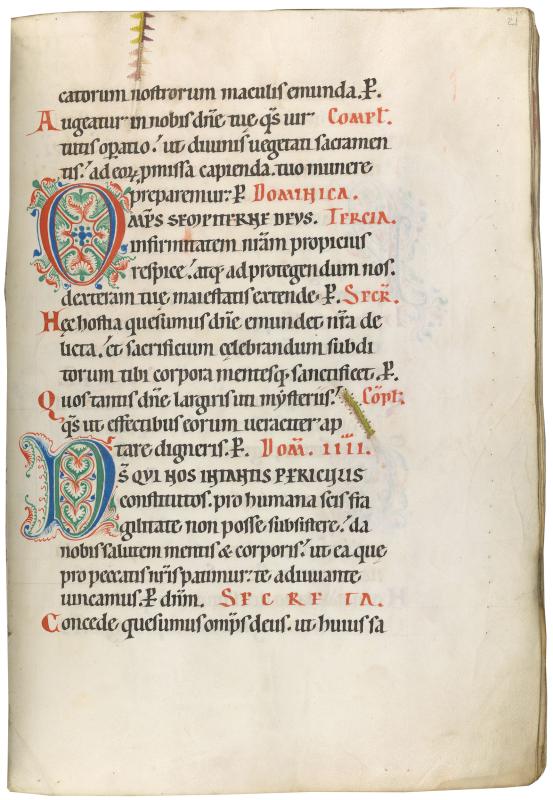 21
catorum nostrorum maculis emunda. P̱.
Augeatur in nobis dñe tue q̃s uir Compl̃.
tutis op̱atio. ut diuinis uegetati sacramen
tis. ad eoꝝ p̱missa capienda. tuo munere
preparemur. P̱ DOMINICA.
OMP̃S SEMPITERNE DEUS. TERCIA.
infirmitatem nr̃am propicius
respice. atq; ad protegendum nos.
dexteram tue maiestatis extende. P̱. SECR̃.
Hęc hostia quesumus dñe emundet nr̃a de
licta. et sacrificium celebrandum subdi
torum tibi corpora mentesq; sanctificet. P̱.
Quos tantis dñe largiris uti mysteriis. Cõpl̃.
q̃s ut effectibus eorum ueraciter ap
tare digneris. P̱. DOM̃. IIII.
DS̃ QUI NOS IN TANTIS PERICULIS
constitutos. pro humana scis fra
gilitate non posse subsistere. da
nobis salutem mentis & corporis. ut ea que
pro peccatis nr̃is patimur. te adiuuante
uincamus. P̱ dñm. SECRETA.
Concede quesumus omp̃s deus. ut huius sa